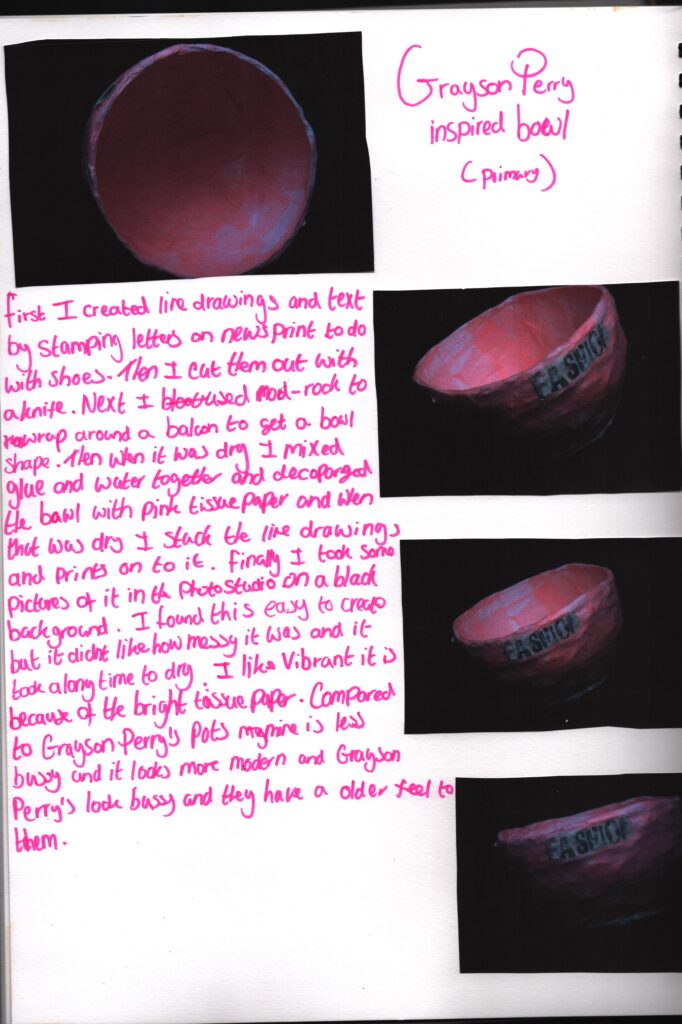 Grayson Perry
inspired bowl
(primary)
first I created line drawings and text
by stamping letters on newsprint to do
with shoes. Then I cut them out with
a knife. Next I used mod-rock to
wrap around a balcon to get a bowl
shape. Then when it was dry I mixed
glue and water together and decoparged
the bawl with pink tissue paper and when
that was dry I stuck the line drawings
and prints on to it. finally I took some
pictures of it in the Photo studio on a black
background. I found this easy to create
but it didnt like how messy it was and it
took along time to dry. I like Vibrant it is
because of the bright tissue paper. Compared
to Grayson Perry's Pots mine is less
bussy and it looks more modern and Grayson
Perry's look bussy and they have a older feel to
them.
FASHION
FASHION
FASHION